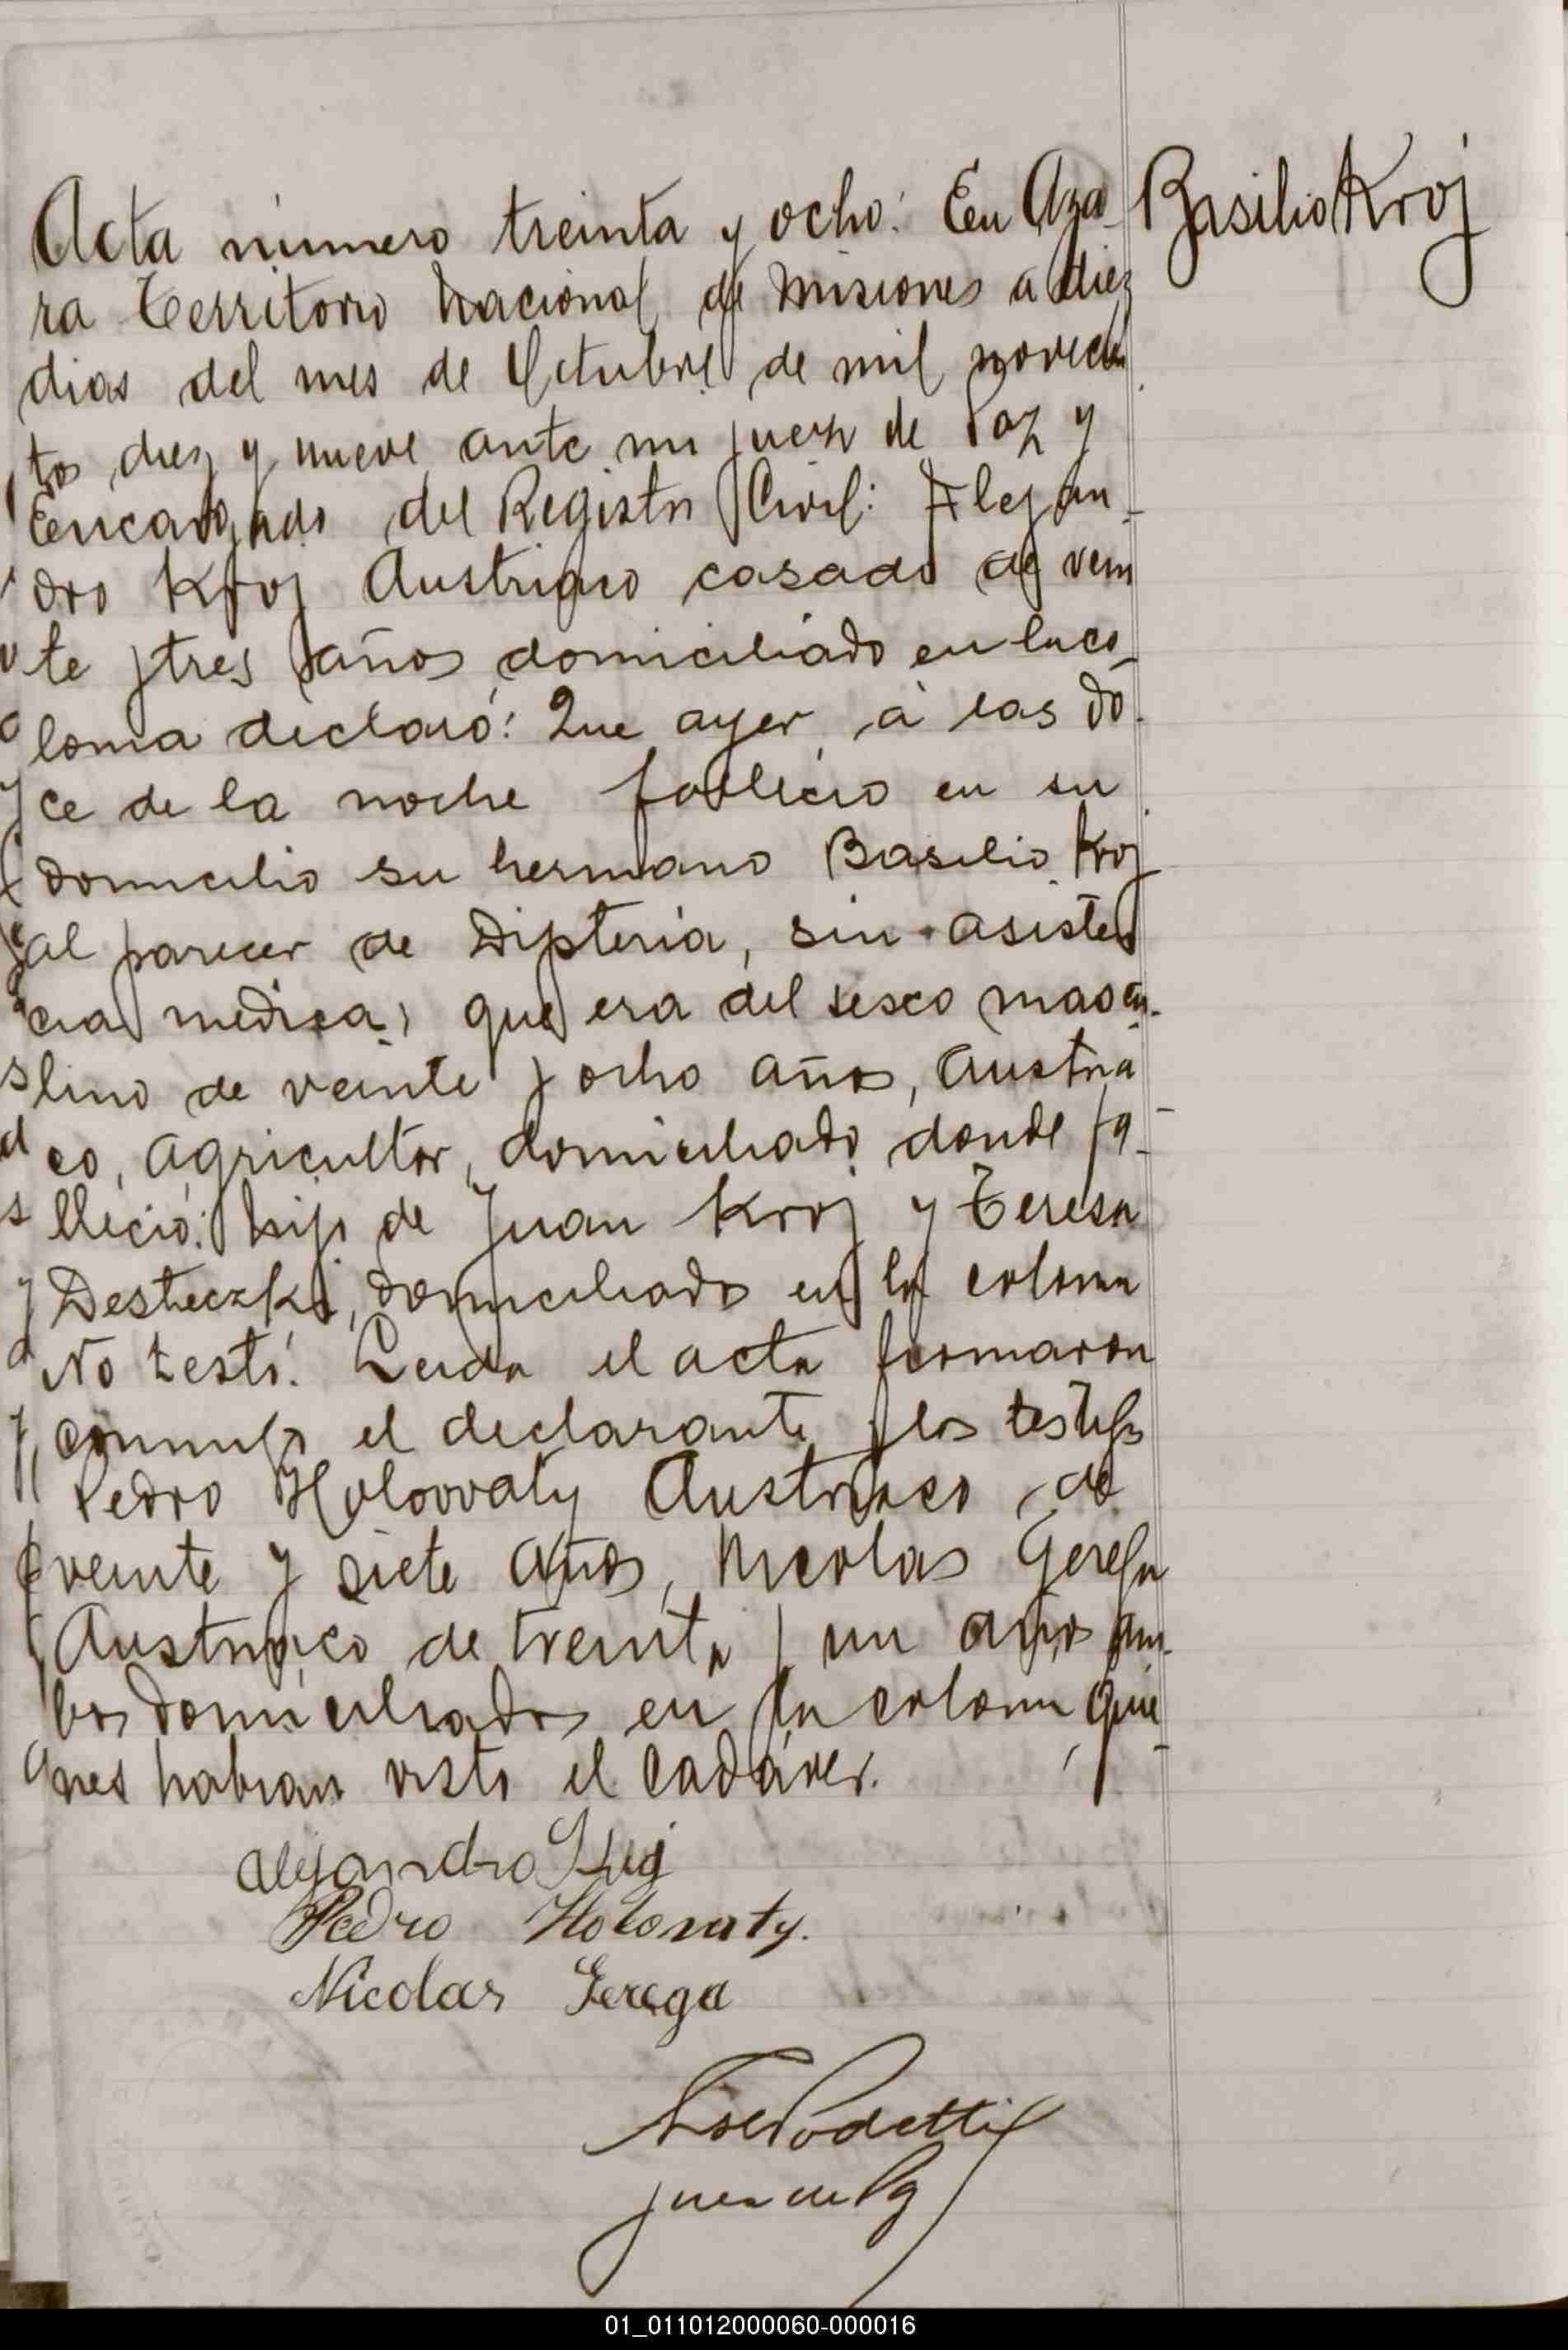 Basilio Kroj
Acta número treinta y ocho: En Aza-
ra Territorio Nacional de Misiones a diez
dias del mes de Octubre de mil novecien
tos diez y nueve ante mi juez de Paz y
Encargado del Registro Civil: Alejan-
dro Kroj Austriaco casado de vein
te y tres años domiciliado en la co-
lonia declaró: Que ayer á las do-
ce de la noche falleció en su
domicilio su hermano Basilio Kroj
al parecer de Dipteria, sin asisten
cia medica, que era del sesco mascu-
lino de veinte y ocho años, Austria
co, agricultor, domiciliado donde fa-
lleció: hijo de Juan Kroj y Teresa
domiciliados en la colonia
No testó. Leida el acta firmaron
conmigo el declarante y los testigos
Pedro Holowaty Austriaco, de
veinte y siete años, Nicolas Gerega
Austriaco de treinta y un años am-
bos domiciliados en la colonia, quie-
nes habian visto el cadáver.
Alejandro
Pedro Holowaty.
Nicolas Gerega
Podetti
juez de Paz
01_011012000060-000016